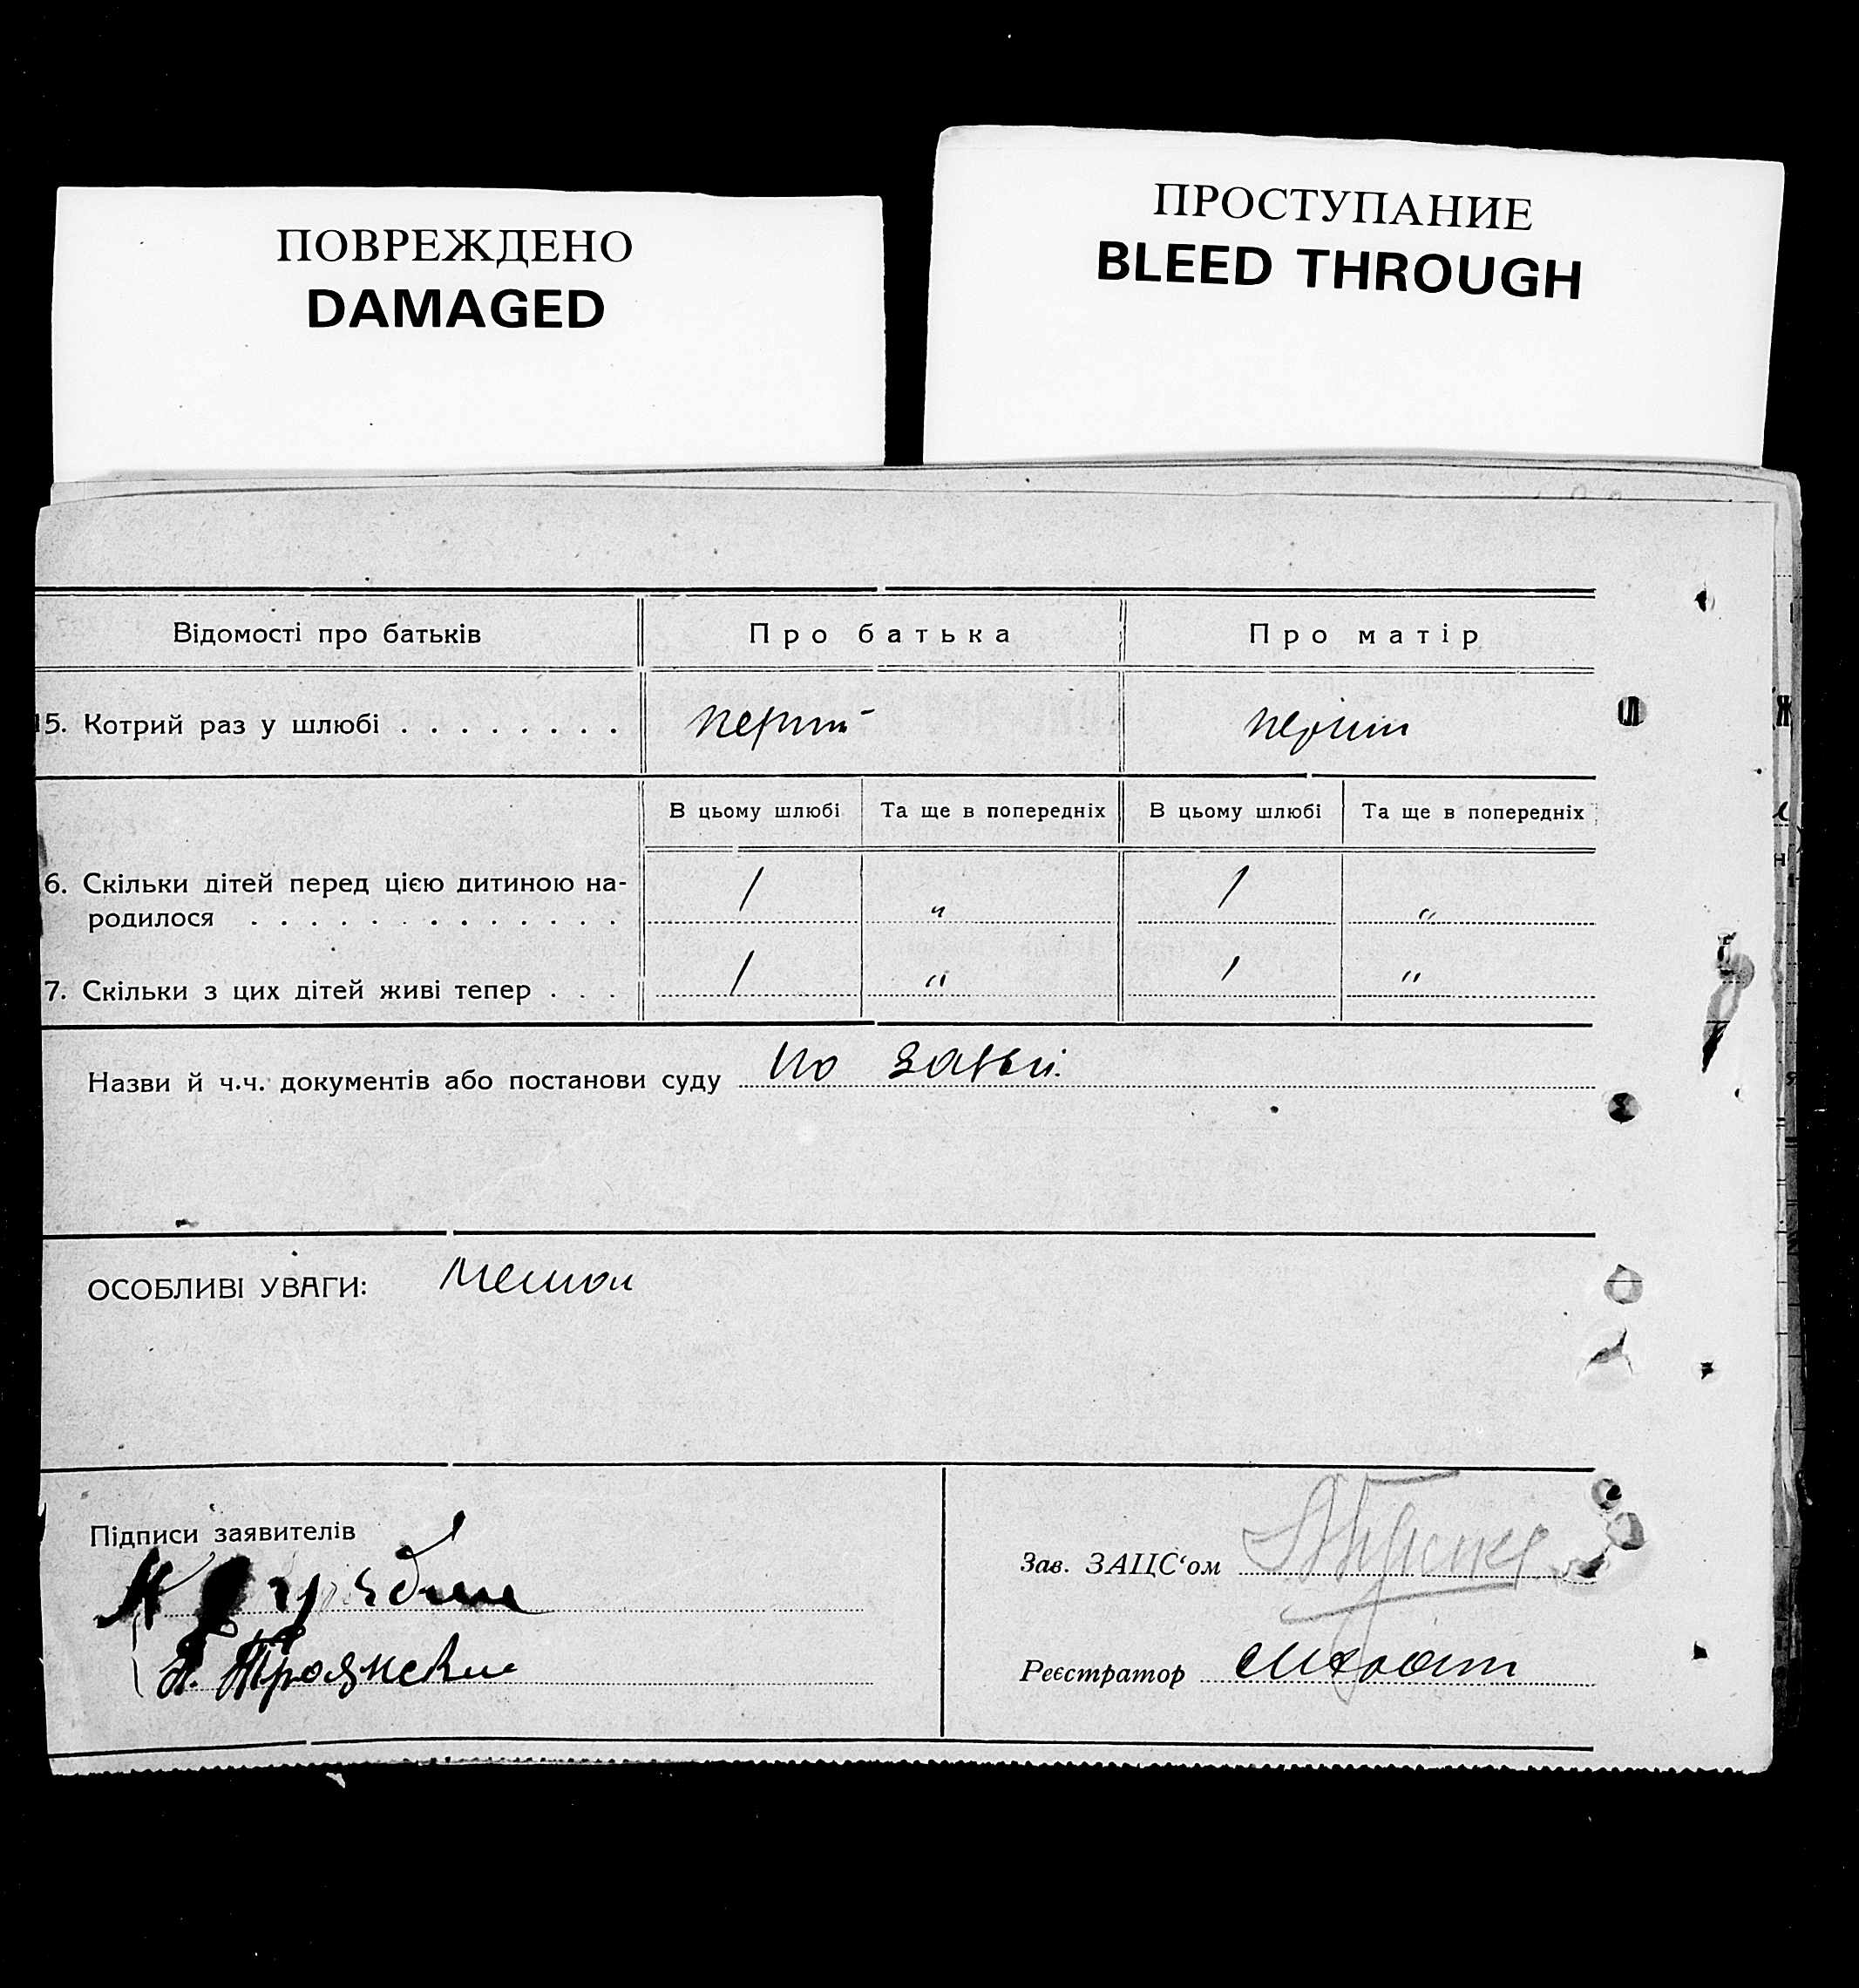 ПОВРЕЖДЕНО
DAMAGED
ПРОСТУПАНИЕ
BLEED THROUGH
Відомості про батьків
Про батька
Про матір
15. Котрий раз у шлюбі . . . . . . . .
перший
перший
В цьому шлюбі
Та ще в попередніх
В цьому шлюбі
Та ще в попередніх
6. Скільки дітей перед цією дитиною на-
родилося . . . . . . . . . . . . .
1 " 1 "
7. Скільки з цих дітей живі тепер . . .
1 " 1 "
Назви й ч.ч. документів або постанови суду по
ОСОБЛИВІ УВАГИ:
Підписи заявителів
Зав. ЗАЦС'ом
Реєстратор